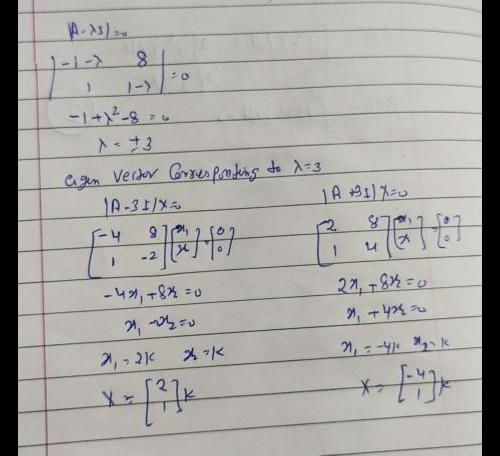 |A-λI|=0
|-1-λ 8|
|1 1-λ|=0
-1+λ²-8=0
λ=±3
eigen vector Corresponding to λ=3
|A-3I|X=0
[-4 8][x₁]=[0]
[1 -2][x]=[0]
-4x₁+8x₂=0
x₁-x₂=0
x₁=2k x₂=k
X=[2]k
[1]
|A+3I|X=0
[2 8][x₁]=[0]
[1 4][x]=[0]
2x₁+8x₂=0
x₁+4x₂=0
x₁=-4k x₂=k
X=[-4]k
[1]